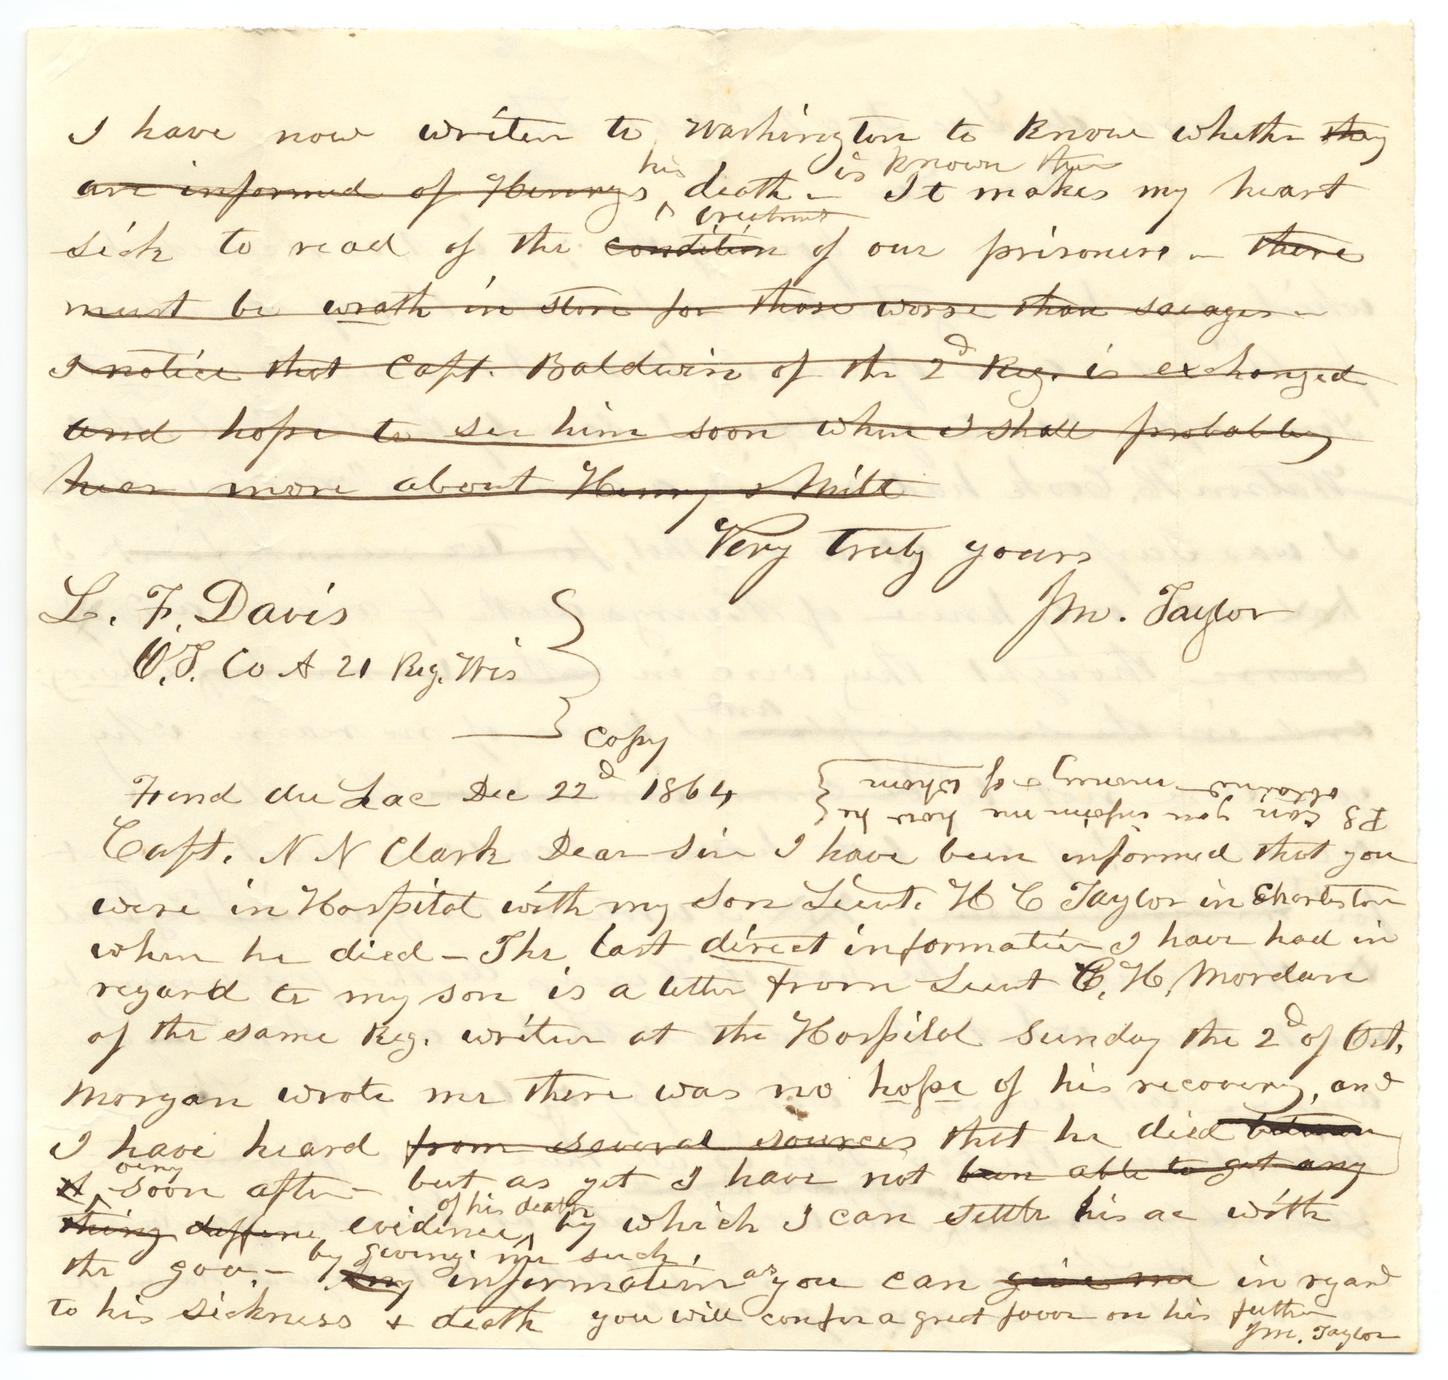 I have now writen to Washington to know whether they
are informed of Henrys his death – is known there It makes my heart
sick to read of the condition treatment of our prisoners – there
must be wrath in store for those worse than savages –
I notice that Capt. Baldwin of the 2d Reg. is exchanged
and hope to see him soon when I shall probably
hear more about Henry & Milt
Very truly yours
L. F. Davis
J M. Taylor
O.S. Co A 21 Reg. Wis
Copy
Fond du Lac Dec 22d 1864
PS Can you inform me how he
obtained money & of whom
Capt. N N Clark Dear Sir I have been informed that you
were in Hospital with my Son Lieut. H C Taylor in Charleston
when he died – The last direct information I have had in
regard to my son is a letter from Lieut C. H. Mordan
of the same Reg. writen at the Hospital Sunday the 2d of Oct.
Morgan wrote me there was no hope of his recovery, and
I have heard from several sources that he died between
very soon after – but as yet I have not been able to get any
thing evidence of his death by which I can settle his ac with
the gov. – by giving me such any information as you can give me in regard
to his sickness & death you will confer a great favor on his father
J M. Taylor